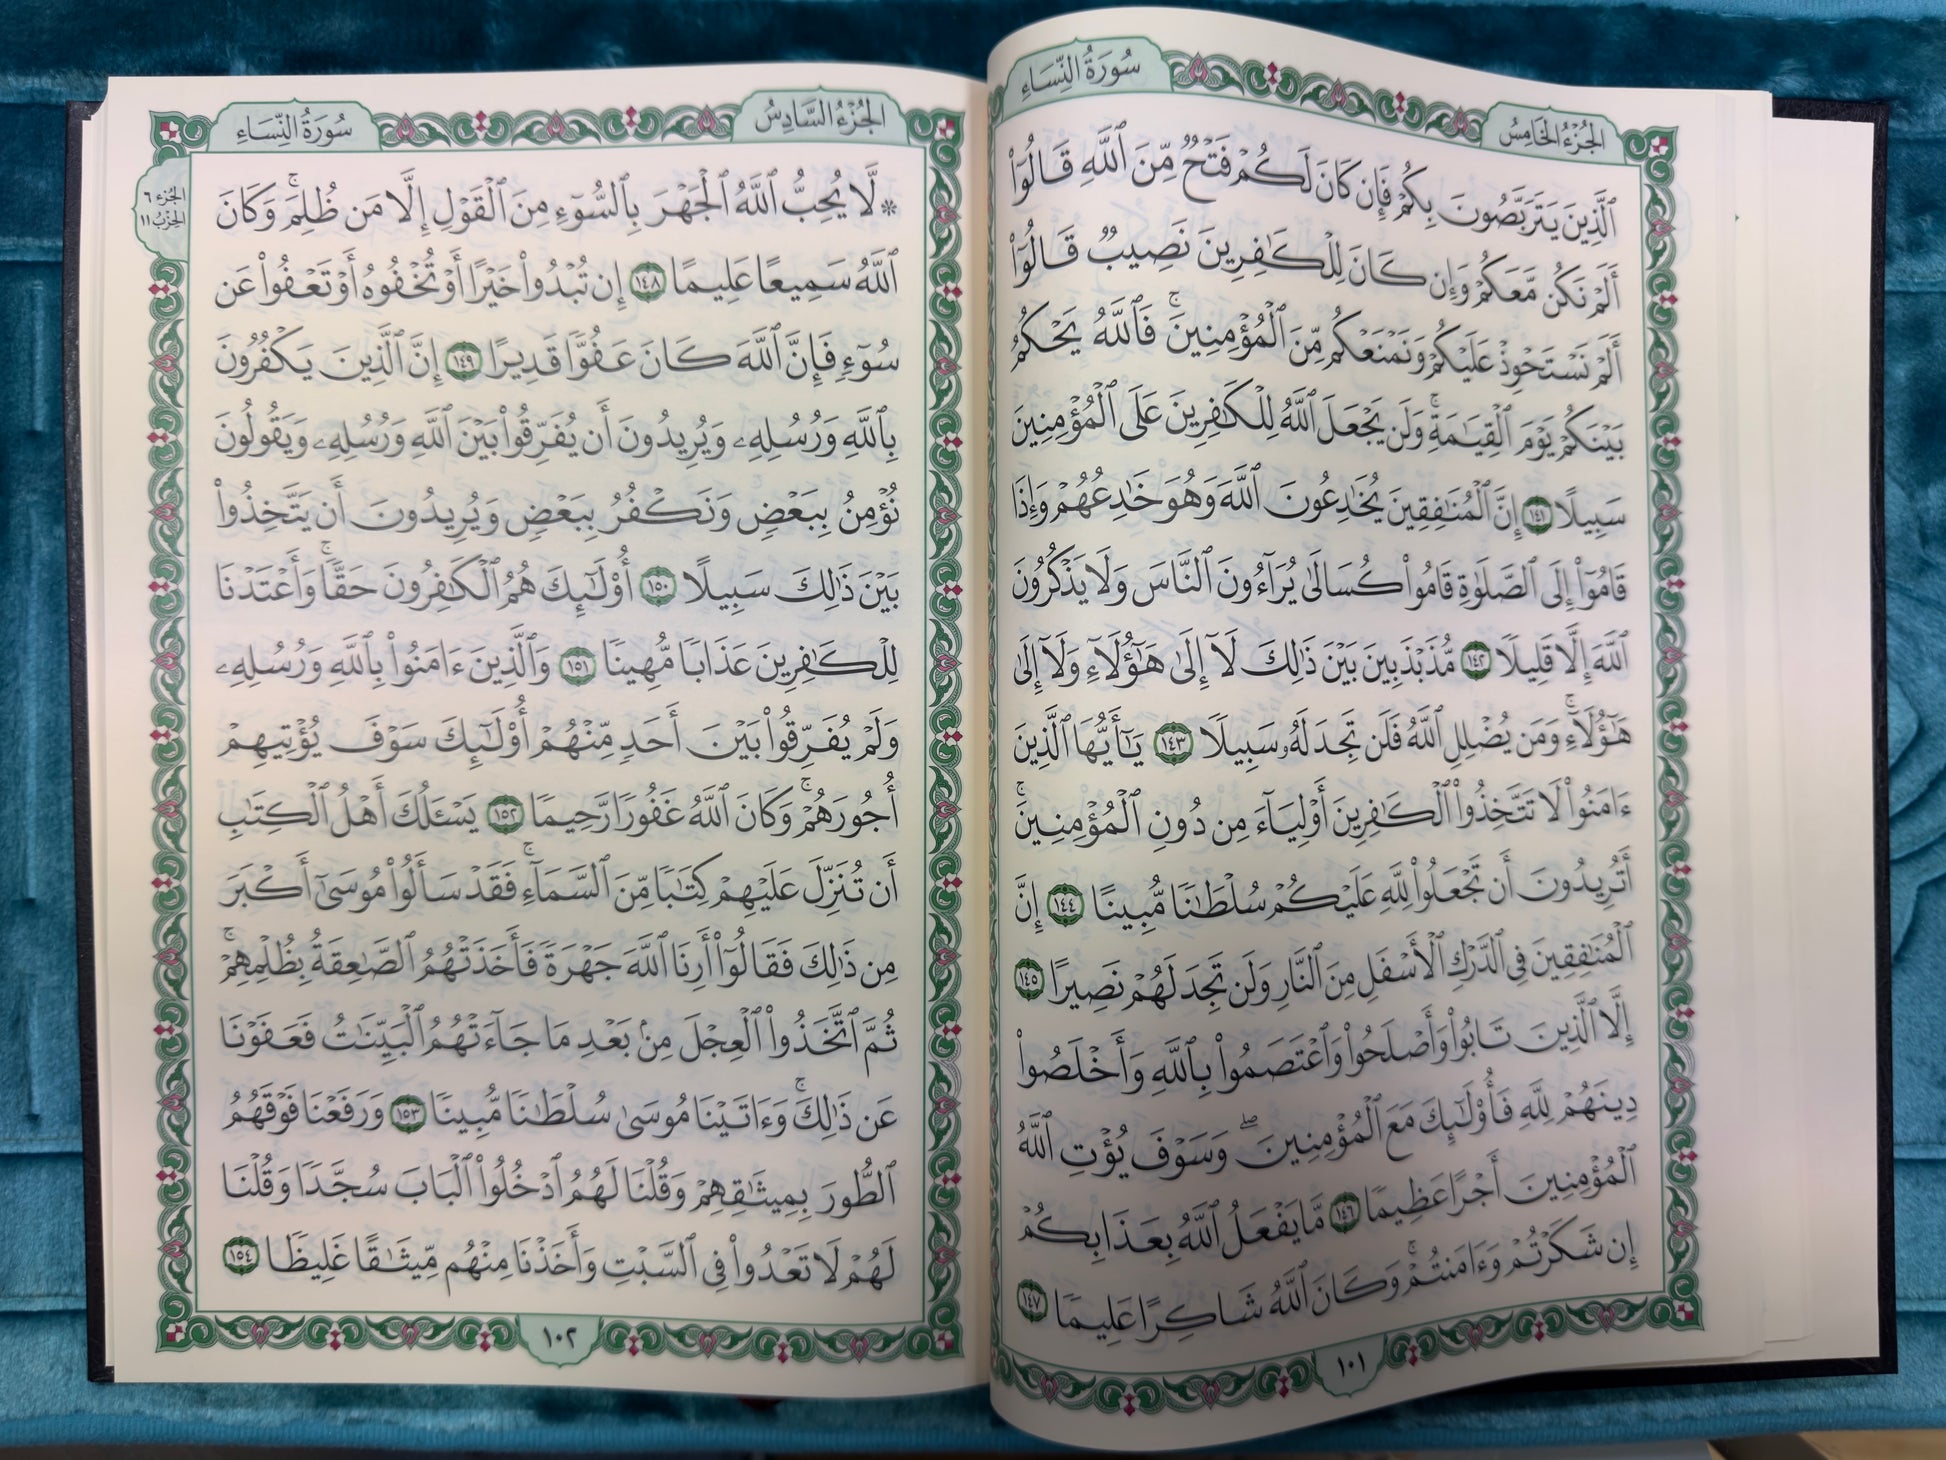 سُورَةُ النِّسَاءِ
الجُزْءُ الخَامِسُ
ٱلَّذِينَ يَتَرَبَّصُونَ بِكُمْ فَإِن كَانَ لَكُمْ فَتْحٌ مِّنَ ٱللَّهِ قَالُوٓا۟
أَلَمْ نَكُن مَّعَكُمْ وَإِن كَانَ لِلْكَٰفِرِينَ نَصِيبٌ قَالُوٓا۟
أَلَمْ نَسْتَحْوِذْ عَلَيْكُمْ وَنَمْنَعْكُم مِّنَ ٱلْمُؤْمِنِينَ ۚ فَٱللَّهُ يَحْكُمُ
بَيْنَكُمْ يَوْمَ ٱلْقِيَٰمَةِ ۗ وَلَن يَجْعَلَ ٱللَّهُ لِلْكَٰفِرِينَ عَلَى ٱلْمُؤْمِنِينَ
سَبِيلًا ١٤١ إِنَّ ٱلْمُنَٰفِقِينَ يُخَٰدِعُونَ ٱللَّهَ وَهُوَ خَٰدِعُهُمْ وَإِذَا
قَامُوٓا۟ إِلَى ٱلصَّلَوٰةِ قَامُوا۟ كُسَالَىٰ يُرَآءُونَ ٱلنَّاسَ وَلَا يَذْكُرُونَ
ٱللَّهَ إِلَّا قَلِيلًا ١٤٢ مُّذَبْذَبِينَ بَيْنَ ذَٰلِكَ لَآ إِلَىٰ هَٰٓؤُلَآءِ وَلَآ إِلَىٰ
هَٰٓؤُلَآءِ ۚ وَمَن يُضْلِلِ ٱللَّهُ فَلَن تَجِدَ لَهُۥ سَبِيلًا ١٤٣ يَٰٓأَيُّهَا ٱلَّذِينَ
ءَامَنُوا۟ لَا تَتَّخِذُوا۟ ٱلْكَٰفِرِينَ أَوْلِيَآءَ مِن دُونِ ٱلْمُؤْمِنِينَ ۚ
أَتُرِيدُونَ أَن تَجْعَلُوا۟ لِلَّهِ عَلَيْكُمْ سُلْطَٰنًا مُّبِينًا ١٤٤ إِنَّ
ٱلْمُنَٰفِقِينَ فِى ٱلدَّرْكِ ٱلْأَسْفَلِ مِنَ ٱلنَّارِ وَلَن تَجِدَ لَهُمْ نَصِيرًا ١٤٥
إِلَّا ٱلَّذِينَ تَابُوا۟ وَأَصْلَحُوا۟ وَٱعْتَصَمُوا۟ بِٱللَّهِ وَأَخْلَصُوا۟
دِينَهُمْ لِلَّهِ فَأُو۟لَٰٓئِكَ مَعَ ٱلْمُؤْمِنِينَ ۖ وَسَوْفَ يُؤْتِ ٱللَّهُ
ٱلْمُؤْمِنِينَ أَجْرًا عَظِيمًا ١٤٦ مَّا يَفْعَلُ ٱللَّهُ بِعَذَابِكُمْ
إِن شَكَرْتُمْ وَءَامَنتُمْ ۚ وَكَانَ ٱللَّهُ شَاكِرًا عَلِيمًا ١٤٧
١٠١
الجُزْءُ السَّادِسُ
سُورَةُ النِّسَاءِ
الجزء ٦
الحزب ١١
۞ لَّا يُحِبُّ ٱللَّهُ ٱلْجَهْرَ بِٱلسُّوٓءِ مِنَ ٱلْقَوْلِ إِلَّا مَن ظُلِمَ ۚ وَكَانَ
ٱللَّهُ سَمِيعًا عَلِيمًا ١٤٨ إِن تُبْدُوا۟ خَيْرًا أَوْ تُخْفُوهُ أَوْ تَعْفُوا۟ عَن
سُوٓءٍ فَإِنَّ ٱللَّهَ كَانَ عَفُوًّا قَدِيرًا ١٤٩ إِنَّ ٱلَّذِينَ يَكْفُرُونَ
بِٱللَّهِ وَرُسُلِهِۦ وَيُرِيدُونَ أَن يُفَرِّقُوا۟ بَيْنَ ٱللَّهِ وَرُسُلِهِۦ وَيَقُولُونَ
نُؤْمِنُ بِبَعْضٍ وَنَكْفُرُ بِبَعْضٍ وَيُرِيدُونَ أَن يَتَّخِذُوا۟
بَيْنَ ذَٰلِكَ سَبِيلًا ١٥٠ أُو۟لَٰٓئِكَ هُمُ ٱلْكَٰفِرُونَ حَقًّا ۚ وَأَعْتَدْنَا
لِلْكَٰفِرِينَ عَذَابًا مُّهِينًا ١٥١ وَٱلَّذِينَ ءَامَنُوا۟ بِٱللَّهِ وَرُسُلِهِۦ
وَلَمْ يُفَرِّقُوا۟ بَيْنَ أَحَدٍ مِّنْهُمْ أُو۟لَٰٓئِكَ سَوْفَ يُؤْتِيهِمْ
أُجُورَهُمْ ۗ وَكَانَ ٱللَّهُ غَفُورًا رَّحِيمًا ١٥٢ يَسْـَٔلُكَ أَهْلُ ٱلْكِتَٰبِ
أَن تُنَزِّلَ عَلَيْهِمْ كِتَٰبًا مِّنَ ٱلسَّمَآءِ ۚ فَقَدْ سَأَلُوا۟ مُوسَىٰٓ أَكْبَرَ
مِن ذَٰلِكَ فَقَالُوٓا۟ أَرِنَا ٱللَّهَ جَهْرَةً فَأَخَذَتْهُمُ ٱلصَّٰعِقَةُ بِظُلْمِهِمْ ۚ
ثُمَّ ٱتَّخَذُوا۟ ٱلْعِجْلَ مِنۢ بَعْدِ مَا جَآءَتْهُمُ ٱلْبَيِّنَٰتُ فَعَفَوْنَا
عَن ذَٰلِكَ ۚ وَءَاتَيْنَا مُوسَىٰ سُلْطَٰنًا مُّبِينًا ١٥٣ وَرَفَعْنَا فَوْقَهُمُ
ٱلطُّورَ بِمِيثَٰقِهِمْ وَقُلْنَا لَهُمُ ٱدْخُلُوا۟ ٱلْبَابَ سُجَّدًا وَقُلْنَا
لَهُمْ لَا تَعْدُوا۟ فِى ٱلسَّبْتِ وَأَخَذْنَا مِنْهُم مِّيثَٰقًا غَلِيظًا ١٥٤
١٠٢